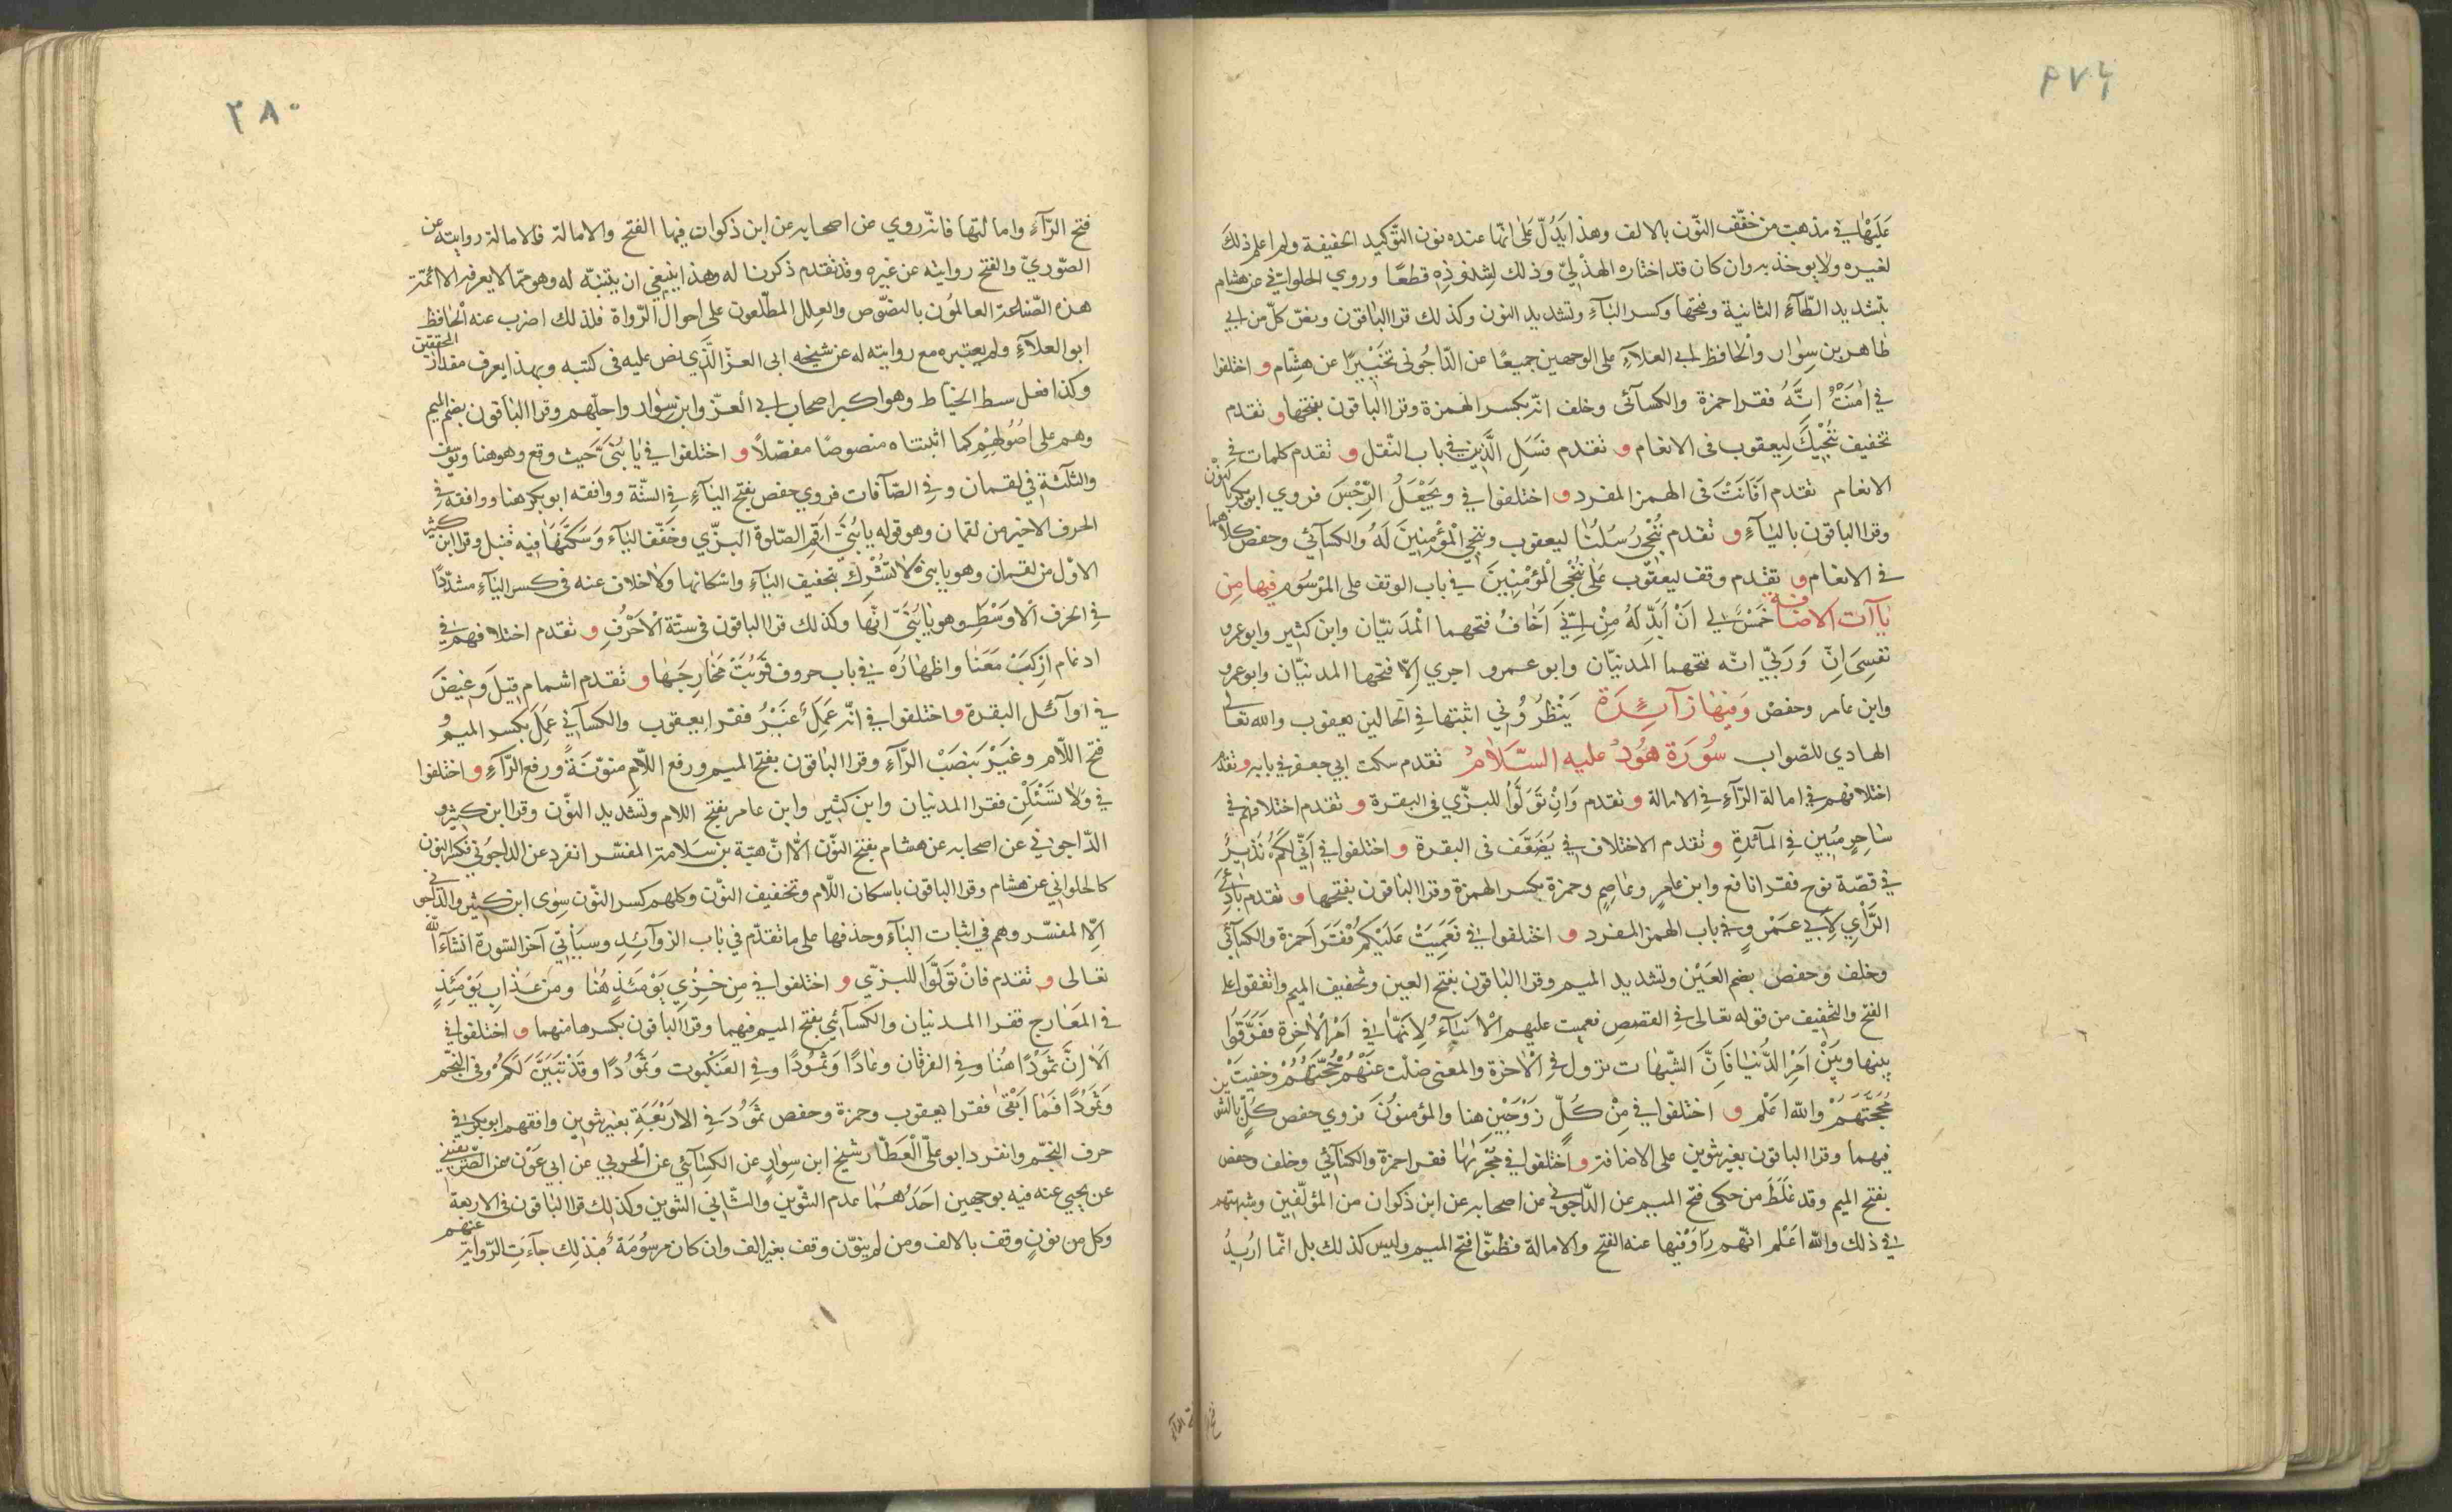 ٢٧٩
عَلَيْهَا في مذهب من خفّف النّون بالالف وهذا يَدُلّ عَلى انّها عنده نون التّوكيد الخفيفة ولم اعلم ذلك
لغيره ولا يوخذ به وان كان قد اختاره الهذليّ وذلك لشذوذه قطعًا وروي الحلوانيّ عن هشام
بتشديد التّآء الثانية وفتحها وكسر البآء وتشديد النون وكذلك قرا الباقون ونصّ كلّ من ابي
طاهر بن سِوار والحافظ ابي العلآء على الوجهين جميعًا عن الدّاجوني تخييرًا عن هِشام و اختلفوا
في اٰمَنْتُ انَّهُ فقرا حمزة والكسآئى وخلف انّه بكسر الهمزة وقرا الباقون بفتحها و تقدم
تخفيف نُنْجِيْكَ ليعقوب فى الانعام و تقدم فسَلِ الَّذِيْنَ في باب النّقل و تقدم كلمات في
الانعام تقدم اَفَانَتْ فى الهمز المفرد و اختلفوا في ويَجْعَلُ الرِّجْسَ فروي ابو بكر بالنّون
وقرا الباقون باليآء و تقدم نُنْجِيْ رُسُلَنَا ليعقوب وننجي الْمُؤْمِنِينَ لَهُ وَالكسآئي وحفص كلاهما
في الانعام و تقدم وقف ليعقوب عَلى نُنْجِ الْمُؤْمِنِينَ في باب الوقف على المرْسُوم فيها مِن
يَآآت الاضافة خَمْسٌ لي اَنْ اُبَدِّلَهُ مِنْ اِنّيْ اَخَافُ فتحهما الْمَدَنيّان وابن كثير وابو عمرو
نفسِىَ اِنّ وَرَبّيْ انّه فتحهما المدنيّان وابو عمرو اجري إلّا فتحها المدنيّان وابو عمرو
وابن عامر وحفص وَفيْهَا زآئِدَة يَنْظُرُوْني اثبتها في الحالين يعقوب والله تعالى
الهادي للصّواب سُوْرَة هُوْد عليه السَّلَامُ تقدم سكت ابي جعفر في بابه و تقدم
اختلافهم في امالة الرّآء في الامالة و تقدم وَاِنْ تَوَلَّوْا للبزّي فى البقرة و تقدم اختلافهم في
سَاحِرٍ مُبِين في المآئدة و تقدم الاختلاف في يضَعَّف فى البقرة و اختلفوا في اَنّي لكُمْ نَذِيْرٌ
في قصّة نوح فقرا نافع وابن عامر وعاصم وحمزة بكسر الهمزة وقرا الباقون بفتحها و تقدم بَادِئَ
الرَّأْيِ لِاَبي عَمْرٍو في باب الهمز المفرد و اختلفوا في نَعَمِيَتْ عَلَيْكُمْ فَقَرَا حَمزة والكسآئى
وخلف وحفص بضم العَيْن وتشديد الميم وقرا الباقون بفتح العين وتخفيف الميم واتفقوا على
الفتح والتخفيف من قوله تعالى في القصص فعميت عليهم الْاَنْبَآءُ لاِنّهَا في اَمْرِ الْاٰخِرَة فَفَرَّقُوا
بينها وبَيْنَ اَمْرِ الدُّنيَا فَاِنَّ الشّبهات تزول في الْاٰخرة والمعنى ضلّت عَنْهُمْ حُجَّتُهُمْ وخفيَتْ
حُجَّتُهُمْ واللّه اعْلم و اختلفوا في مِنْ كُلّ زَوْجَيْن هنا والمؤمنوُنَ فروي حفص كُلٍّ بالتنوين
فيهما وقرا الباقون بغير تنوين على الاضافة و اختلفوا في مَجْرٰىهَا فقرا حمزة والكسآئي وخلف وحفص
بفتح الميم وقد غَلَطَ من حكى فتح الميم عن الدّاجوني عن اصحابه عن ابن ذكوان من المؤلّفين وشبهتهم
في ذلك واللّه اَعْلم انّهم رَاَوْفيها عنه الفتح والامالة فظنّوا فتح الميم وليس كذلك بل انّما اُرِيْدُ
فتح الرّآء
٢٨٠
فتح الرّآء وامالتها فانّه روي عن اصحابه عن ابن ذكوان فيها الفتح والامالة فالامالة روايته عن
الصّوريّ والفتح روايته عن غيره وقد تقدم ذكرنا له وهذا ينبغي ان يتنبّه له وهو ممّا لا يعرفه الا ائمّة
هذه الصّناعة العالمُون بالنصُوص والعِلل المطّلعون على احوال الرّواة فلذلك اضرب عنه الْحَافظ
ابو العلآء ولم يعتبره مع روايته له عن شيخه ابى العزّ الَّذِي نص عليه فى كتبه وبهذا يعرف مقدار المحققين
وكذا فعل سبط الخياط وهو اكبر اصحاب ابي العزّ وابن سِوار واجلّهم وقرا الباقون بضم الميم
وهم على اصُوْلِهِمْ كما اثبتناه منصوصًا مفصّلاً و اختلفوا في يَا بُنَىَّ حَيث وقع وهو هنا ويُوسُف
والثلاثة في لقمان وفي الصّآفات فروي حفص بفتح اليآء في الستّة ووافقه ابو بكر هنا ووافقه في
الحرف الاخير من لقمان وهو قوله يا بُنَيَّ اَقِمِ الصّلوة البزّي وخَفّف اليآء وَسَكَّنَهَا فيه قنبل وقرا ابن كثير
الاوّل من لقمان وهو يا بنيّ لَا تُشْرِكْ بتخفيف اليآء واسكانها ولا خلاف عنه فى كسر اليآء مشدّدًا
في الحَرف الْاَوْسَطِ وهو يَا بُنَيَّ انّهَا وكذلك قرا الباقون فى ستّة الْاَحْرُفِ و تقدم اختلافهم في
ادغام اِرْكَبْ مَعَنَا واظهارُه في باب حروف قَرُبَتْ مَخَارِجَهَا و تقدم اشمام قِيلَ وَغِيضَ
في اوآئل البقرة و اختلفوا في انّه عَمِلَ غَيْرُ فقرا يعقوب والكسآئي عَمِلَ بكسر الميم و
فتح اللّام وغَيْرَ بنصَبْ الرَّآء وقرا الباقون بفتح الميم ورفع اللّام منوّنةً ورفع الرَّآء و اختلفوا
في وَلا تَسْئَلْن فقرا المدنيان وابن كثير وابن عامر بفتح اللام وتشديد النّون وقرا ابن كثير و
الدّاجوني عن اصحابه عن هشام بفتح النّون الّا انّ هبَة بن سَلامة المفسّر انفرد عن الداجوني بكسر النون
كالحلواني عن هشام وقرا الباقون باسكان اللّام وتخفيف النّون وكلهم كسر النّون سِوٰى ابن كثير والدّاجوني
اِلّا المفسّر وهم في اثبات اليآء وحذفها على ما تقدّم في بَاب الزوآئد وسيَأتي آخر السّورة انشآء الله
تعالى و تقدم فَانْ تَوَلَّوْا للبزّي و اختلفوا في مِن خِزْيِ يَوْمَئِذٍ هُنا ومن عَذَابِ يَوْمَئِذٍ
في المعَارج فقرا المدنيان والكسآئي بفتح الميم فيهما وقرا الباقون بكسرها منهما و اختلفوا في
اَلَا اِنَّ ثَمُوْدًا هُنَا وفي الفرقان وعَادًا وَثَمُوْدًا وفي العَنكبوت وَثَمُوْدًا وقَدْ تَبَيَّنَ لَكُمْ وفى النّجم
وَثَمُوْدًا فَمَا اَبْقٰى فقرا يعقوب وحمزة وحفص ثمَوُدَ فِي الارْبَعَةِ بغير تنوين وافقهم ابو بكر في
حرف النّجْم وانفرد ابو عليّ الْعَطّار شيخ ابن سِوار عن الكِتّاني عن الْحربي عن ابي عَوْن عن الصّريفيني
عن يحيى عنه فيه بوجهين احَدُهُمَا عدم التّنوين والثّاني التنوين وكذلك قرا الباقون فى الاربعة
وكل من نوّن وقف بالالف ومن لم ينوّن وقف بغير الف وان كان مرسُومَة فبذلك جآءتِ الرّواية عنهم